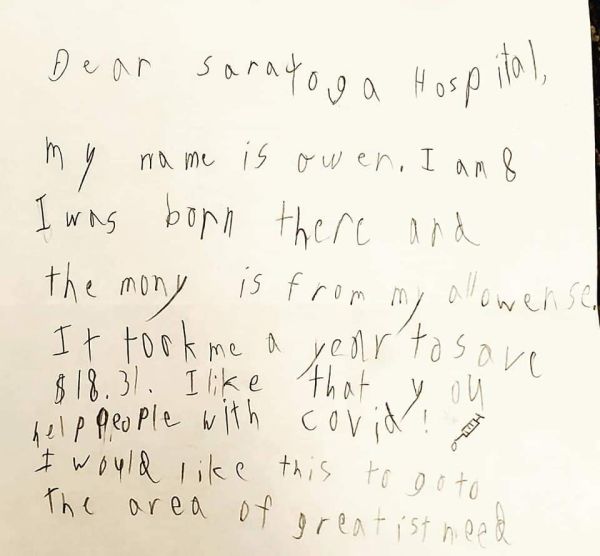 Dear saratoga Hospital,
my name is owen. I am 8
I was born there and
the mony is from my allowense.
It took me a year to save
$18.31. I like that you
help people with covid!
I would like this to go to
the area of greatist need